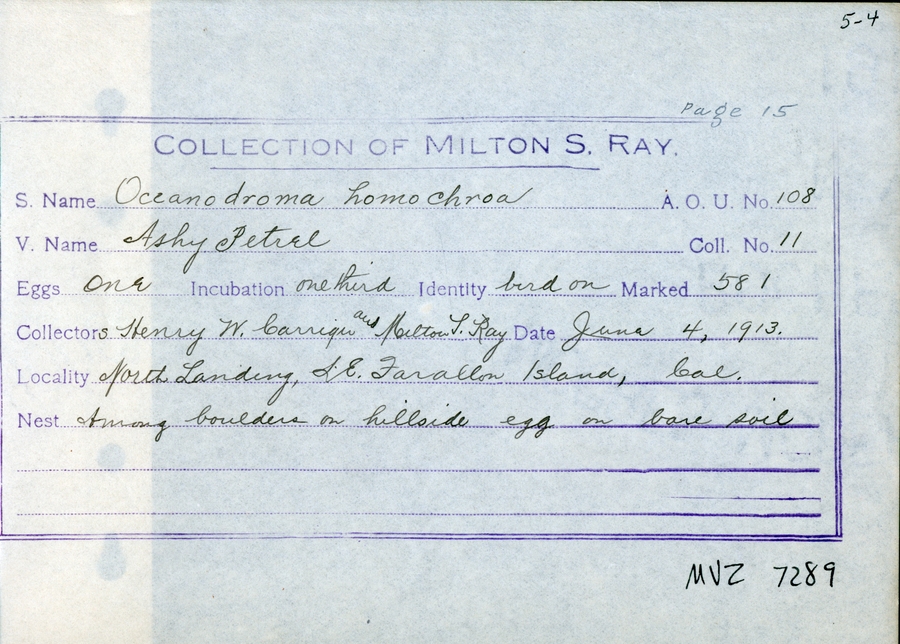 5-4
Page 15
COLLECTION OF MILTON S. RAY.
S. Name Oceanodroma homochroa A. O. U. No. 108
V. Name Ashy Petrel Coll. No. 11
Eggs One Incubation one third Identity bird on Marked 581
Collectors Henry W. Carriger and Milton S. Ray Date June 4, 1913.
Locality North Landing, S.E. Farallon Island, Cal.
Nest Among boulders on hillside egg on bare soil
MVZ 7289